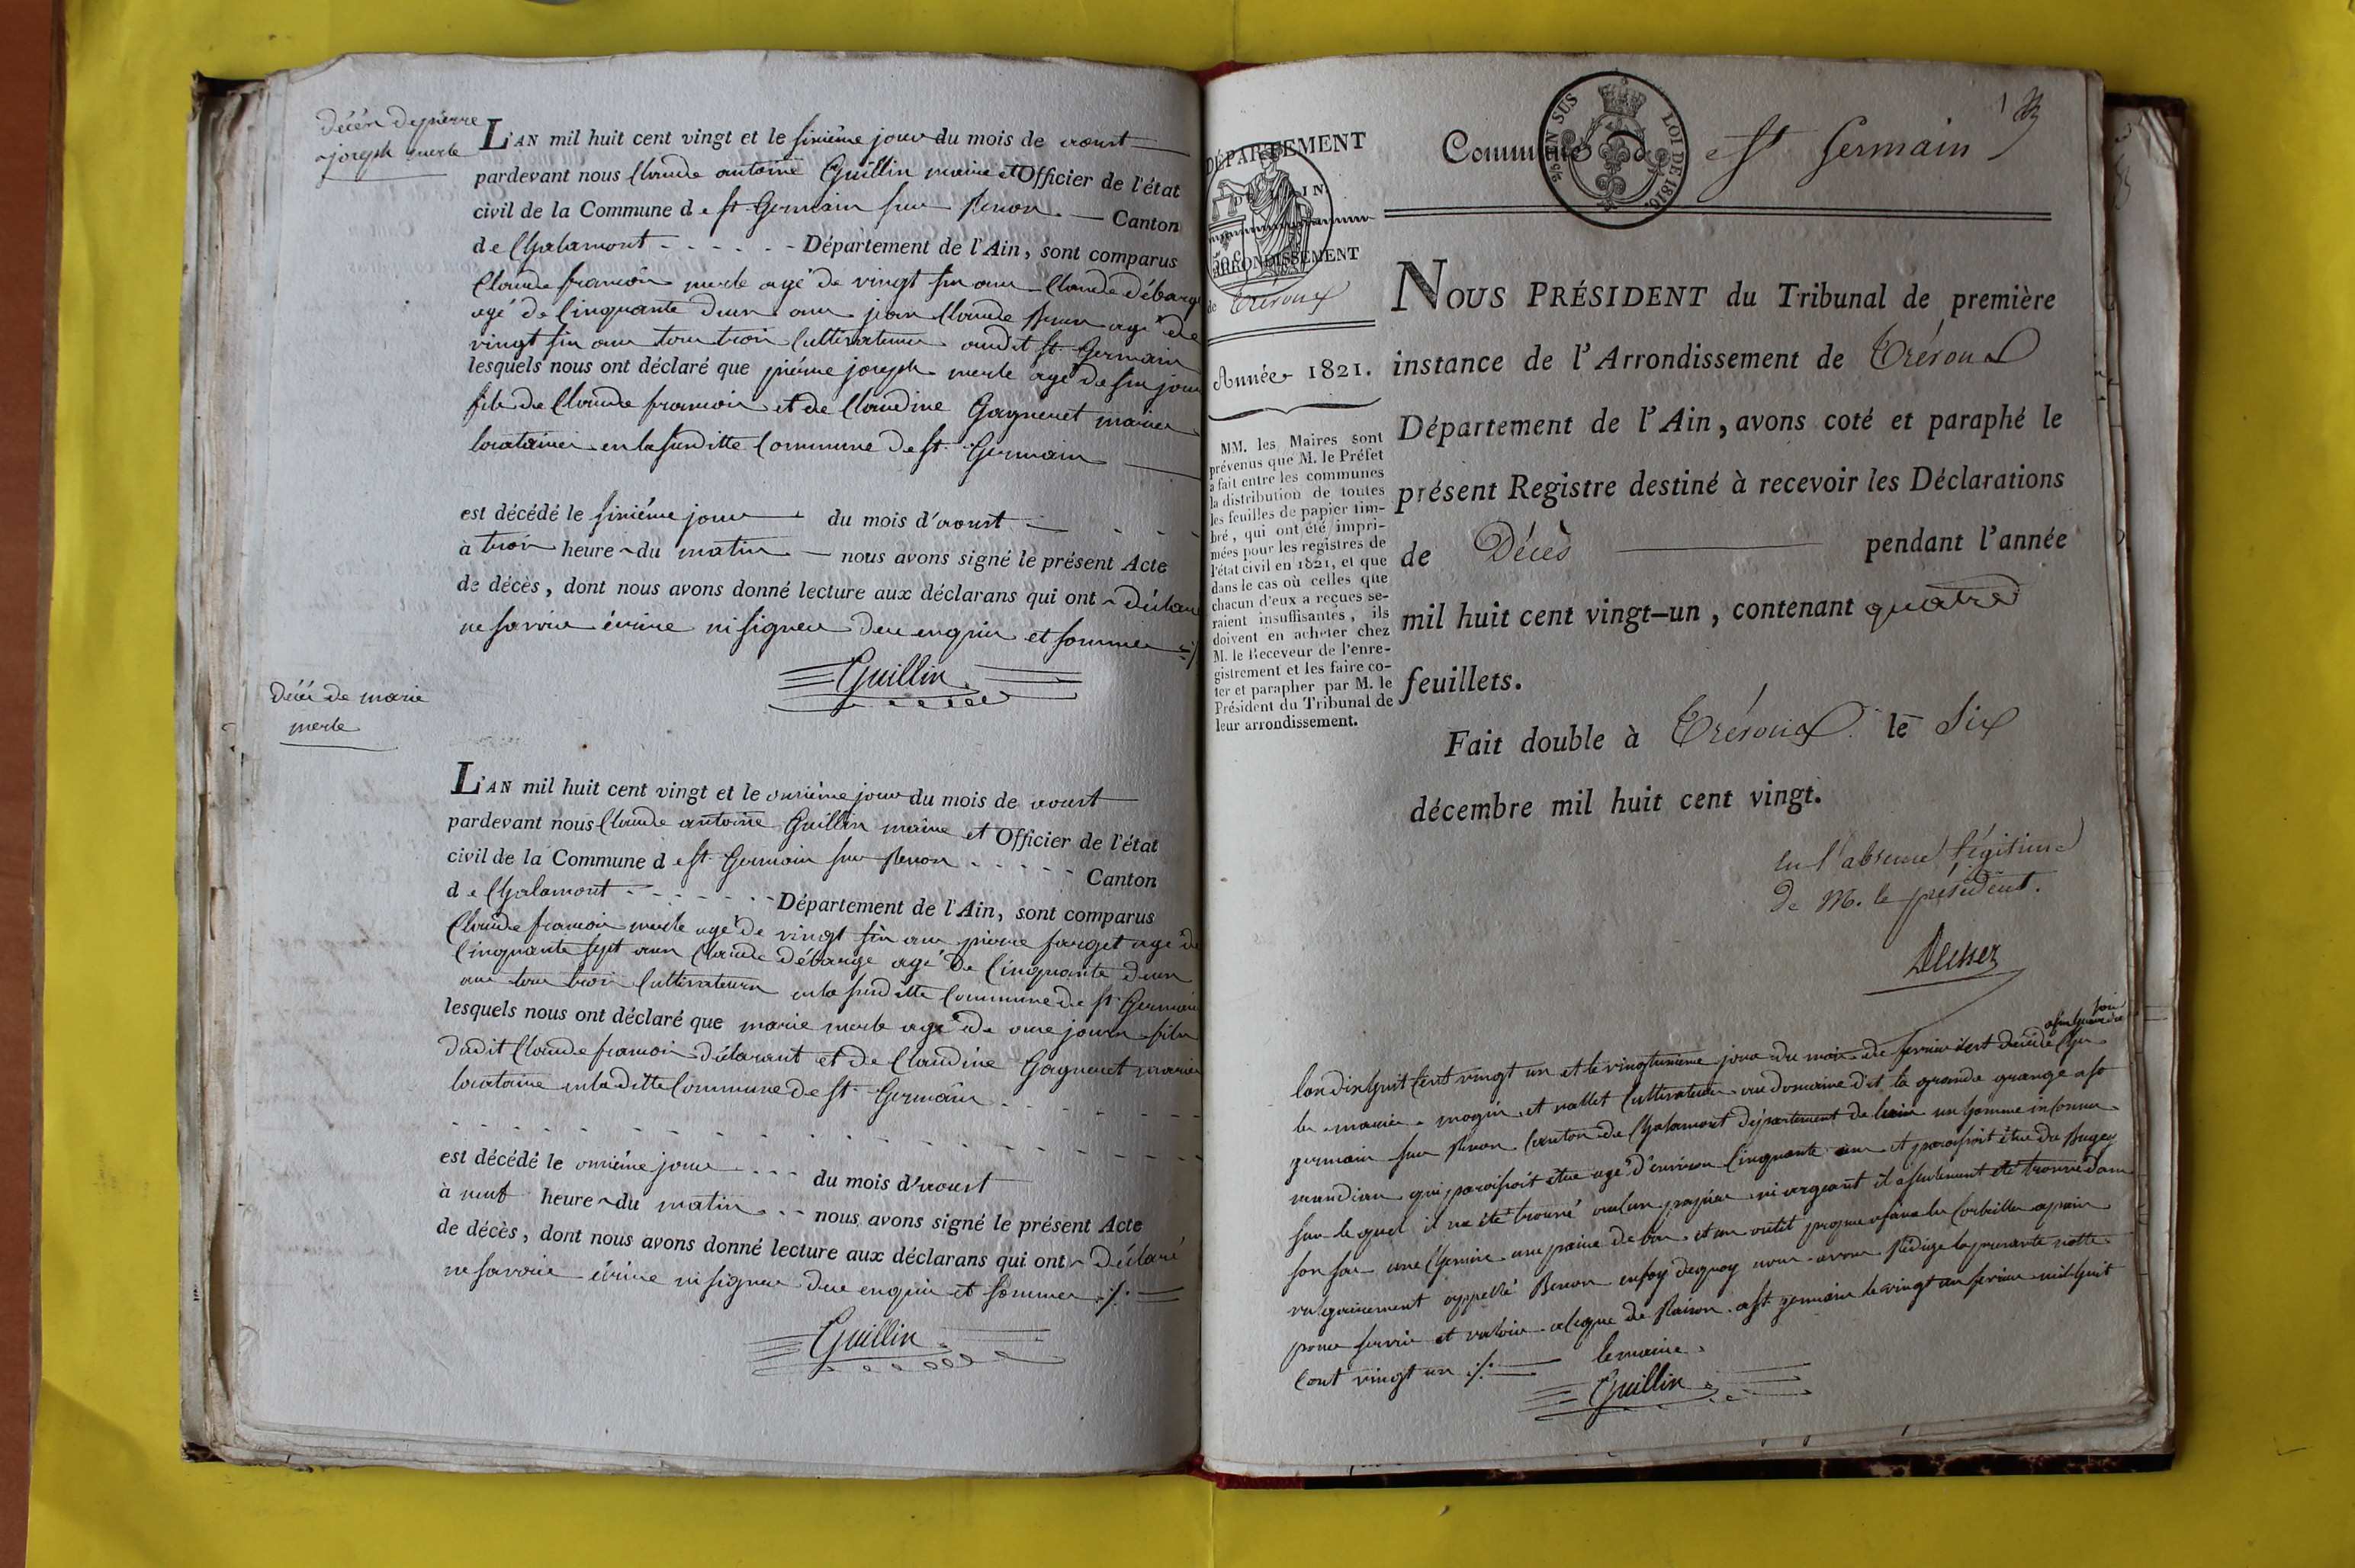 décès de pierre
joseph merle
L'AN mil huit cent vingt et le sixième jour du mois de aoust
pardevant nous Claude antoine Guillin maire et Officier de l'état
civil de la Commune d e st Germain sur Renon Canton
de Chalamont - - - - - - Département de l'Ain, sont comparus
Claude francois merle agé de vingt six ans Claude débarge
agé de Cinquante deux ans jean Claude agé de
vingt six ans tous trois Cultivateurs audit st Germain
lesquels nous ont déclaré que pierre joseph merle agé de six jours
fils de Claude francois et de Claudine Gagneuet mariés
locataires en la susditte Commune de st Germain
est décédé le sixième jour du mois d'aoust
à trois heures du matin nous avons signé le présent Acte
de décès, dont nous avons donné lecture aux déclarans qui ont déclaré
ne savoir écrire ni signer de ce enquis et sommés ./.
Guillin
décès de marie
merle
L'AN mil huit cent vingt et le onzième jour du mois de aoust
pardevant nous Claude antoine Guillin maire et Officier de l'état
civil de la Commune d e st Germain sur Renon - - - - - Canton
d e Chalamont - - - - - - Département de l'Ain, sont comparus
Claude francois merle agé de vingt six ans pierre farget agé de
Cinquante sept ans Claude débarge agé de Cinquante deux
ans tous trois Cultivateurs en la susditte Commune de st Germain
lesquels nous ont déclaré que marie merle agé de onze jours fille
dudit Claude francois déclarant et de Claudine Gagneuet mariés
locataire en la ditte Commune de st Germain
est décédé le onzième jour - - - du mois d'aoust
à neuf heures du matin - - nous avons signé le présent Acte
de décès, dont nous avons donné lecture aux déclarans qui ont déclaré
ne savoir écrire ni signer de ce enquis et sommés ./.
Guillin
DÉPARTEMENT
DE L'AIN.
ARRONDISSEMENT
de Trévoux
Année 1821.
MM. les Maires sont
prévenus que M. le Préfet
a fait entre les communes
la distribution de toutes
les feuilles de papier tim-
bré, qui ont été impri-
mées pour les registres de
l'état civil en 1821, et que
dans le cas où celles que
chacun d'eux a reçues se-
raient insuffisantes, ils
doivent en acheter chez
M. le Receveur de l'enre-
gistrement et les faire co-
ter et parapher par M. le
Président du Tribunal de
leur arrondissement.
Commune de St Germain
EN SUS
LOI DE 1816.
NOUS PRÉSIDENT du Tribunal de première
instance de l'Arrondissement de Trévoux
Département de l'Ain, avons coté et paraphé le
présent Registre destiné à recevoir les Déclarations
de Décès pendant l'année
mil huit cent vingt-un, contenant quatre
feuillets.
Fait double à Trévoux le Six
décembre mil huit cent vingt.
En l'absence légitime
de M. le président.
lan dix huit Cent vingt un et le vingtunieme jour du mois de fevrier est décédé Ches
les mariés magnin et vallet Cultivateurs au domaine dit la grande grange a st
germain sur Renon Canton de Chalamont département de lain un homme inconnu
mandian qui paroissoit être agé d'environ Cinquante ans et paroissoit être du Bugey
sur le quel il na été trouvé aucun papier ni argeant il a seulement été trouvé dans
son sac une Chemise une paire de bas et un outil propre a faire les Corbeilles a pain
vulgairement appellé Benon en foy de quoy nous avons Rédigé la presente notte
pour servir et valoir a ce que de Raison a st germain le vingt un fevrier mil huit
Cent vingt un ./. le maire
Guillin